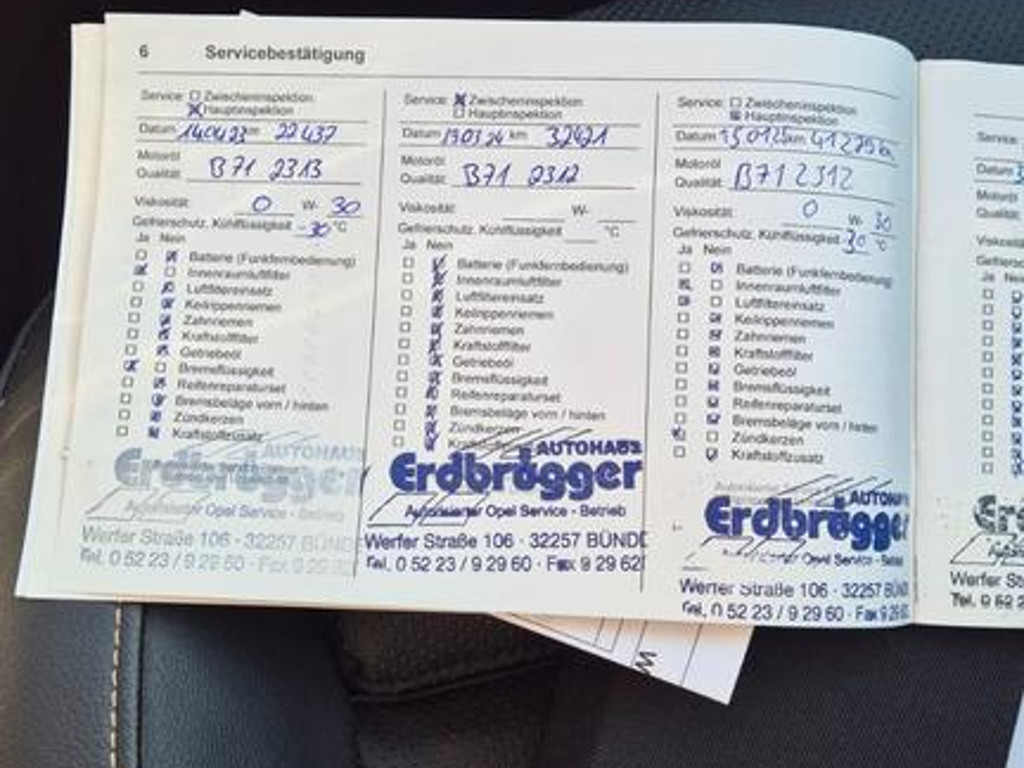 6 Servicebestätigung
Service: Zwischeninspektion
Hauptinspektion
Datum 140423 km 22437
Motoröl
Qualität: B71 2313
Viskosität: 0 W- 30
Gefrierschutz, Kühlflüssigkeit -30 °C
Ja Nein
Batterie (Funkfernbedienung)
Innenraumluftfilter
Luftfiltereinsatz
Keilrippenriemen
Zahnriemen
Kraftstofffilter
Getriebeöl
Bremsflüssigkeit
Reifenreparaturset
Bremsbeläge vorn / hinten
Zündkerzen
Kraftstoffzusatz
AUTOHAUS
Erdbrügger
Autorisierter Opel Service - Betrieb
Werfer Straße 106 · 32257 BÜND
Tel. 0 52 23 / 9 29 60 · Fax 9 29
Service: Zwischeninspektion
Hauptinspektion
Datum 130324 km 32421
Motoröl
Qualität: B71 2312
Viskosität: W-
Gefrierschutz, Kühlflüssigkeit °C
Ja Nein
Batterie (Funkfernbedienung)
Innenraumluftfilter
Luftfiltereinsatz
Keilrippenriemen
Zahnriemen
Kraftstofffilter
Getriebeöl
Bremsflüssigkeit
Reifenreparaturset
Bremsbeläge vorn / hinten
Zündkerzen
AUTOHAUS
Erdbrügger
Autorisierter Opel Service - Betrieb
Werfer Straße 106 · 32257 BÜND
Tel. 0 52 23 / 9 29 60 · Fax 9 29 62
Service: Zwischeninspektion
Hauptinspektion
Datum 150125 km
Motoröl
Qualität: B71 2312
Viskosität: 0 W- 30
Gefrierschutz, Kühlflüssigkeit -30 °C
Ja Nein
Batterie (Funkfernbedienung)
Innenraumluftfilter
Luftfiltereinsatz
Keilrippenriemen
Zahnriemen
Kraftstofffilter
Getriebeöl
Bremsflüssigkeit
Reifenreparaturset
Bremsbeläge vorn / hinten
Zündkerzen
Kraftstoffzusatz
AUTOHA
Erdbrügger
Opel Service - Betrieb
Werfer Straße 106 · 32257 BÜND
Tel. 0 52 23 / 9 29 60 · Fax 9 29 62
Service:
Datum
Motoröl
Qualität:
Viskosität
Gefriersc
Ja Nein
Werfer St
Tel. 0 52
W